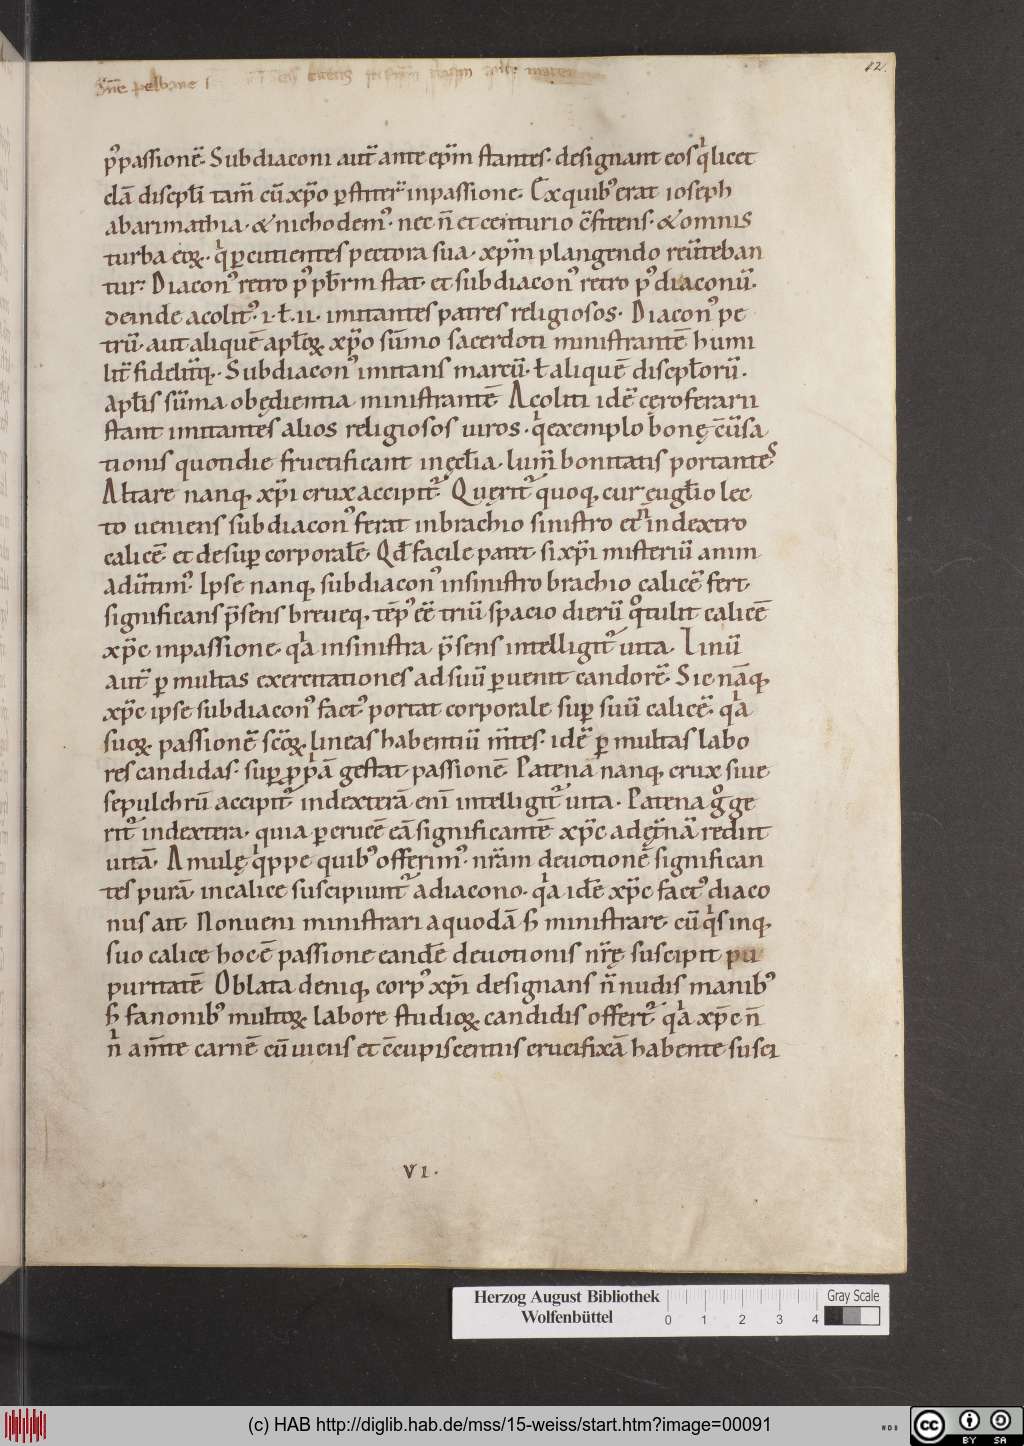 12.
p᷒passionē. Subdiaconi aut̄ ante ep̄m stantes. designant eos qͥ licet
clā discip̄li tam̄ cū xp̄o p̱stiter̄ inpassione. Ex quib᷒ erat ioseph
abarimathia. & nichodem᷒. nec n̄ et centurio c̄fitens. & omnis
turba eoꝝ. qͥ p̱cutientes pectora sua. xp̄m plangendo reūteban
tur. Diacon᷒ retro p᷒ pb̄rm stat. et subdiacon᷒ retro p᷒ diaconū.
deinde acolit᷒. i. ł. ii. imitantes patres religiosos. Diacon᷒ pe
trū. aut aliquē ap̄loꝝ xp̄o sūmo sacerdoti ministrantē humi
lit̄ fidelit̄q;. Subdiacon᷒ imitans marcū. ł aliquē discip̄lorū.
ap̄lis sūma obędientia ministrantē Acoliti idē cęroferarii
stant imitantes alios religiosos uiros. qͥ exemplo bonę c̄ūsa
tionis quotidie fructificant inęccl̄ia. lum̄ bonitatis portantes
Altare nanq; xp̄i crux accipit᷑. Quęrit᷑ quoq; cur ęugl̄io lec
to ueniens subdiacon᷒ ferat inbrachio sinistro et n̄ indextro
calicē. et desup̱ corporalē. Qđ facile patet. si xp̄i misteriū anim
adūtim᷒. Ipse nanq; subdiacon᷒ insinistro brachio calicē fert
significans p̄sens breueq; tēp᷒ eē triū spacio dierū qͦ tulit calicē
xp̄c inpassione. qͥa insinistra p̄sens intelligit᷑ uita. Linū
aut̄ p̱ multas exercitationes ad suū p̱uenit candorē. Sic nāq;
xp̄c ipse subdiacon᷒ fact᷒ portat corporale sup̱ suū calicē. qͥa
suoꝝ passionē sc̄oꝝ lineas habentiū m̄tes. idē p̱ multas labo
res candidas. sup̱ p̱pͥā gestat passionē. Patena nanq; crux siue
sepulchrū accipit᷑ indexterā eni intelligit᷑ uita. Patena gͦ ge
rit᷑ indextera. quia p̱ crucē eā significantē xp̄c adęt̄nā rediit
uitā. Amulę qͥppe quib᷒ offerim᷒. nr̄am deuotionē significan
tes purā. incalice suscipiunt᷑ adiacono. qͥa idē xp̄c fact᷒ diaco
nus ait. Nonueni ministrari aquodā s̄ ministrare. cū qͥs inq;
suo calice hoc ē passione eandē deuotionis nr̄ę suscipit pu
puritatē Oblata deniq; corp᷒ xp̄i designans n̄ nudis manib᷒
s̄ fanonib᷒ multoꝝ labore studioꝝ candidis offert᷑. qͥa xp̄c n̄
n̄ am̄te carnē cū uiciis et c̄cupiscentiis crucifixā habente susci
VI.
Herzog August Bibliothek
Wolfenbüttel
Gray Scale
0 1 2 3 4
(c) HAB http://diglib.hab.de/mss/15-weiss/start.htm?image=00091
cc
BY SA